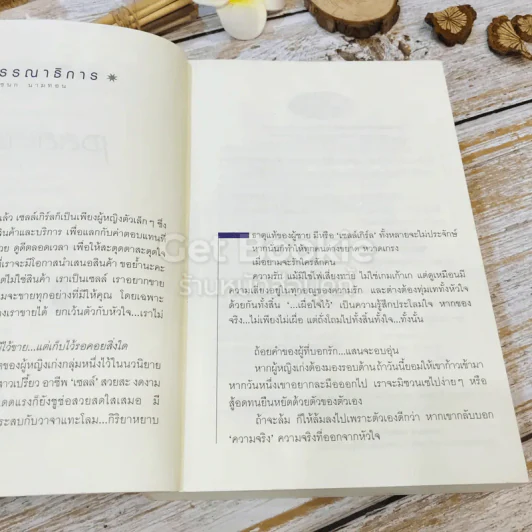 รรณาธิการ
แล้ว เซลล์เกิร์ลก็เป็นเพียงผู้หญิงตัวเล็กๆ ซึ่ง
สินค้าและบริการ เพื่อแลกกับค่าตอบแทนที่
วย ดูดีตลอดเวลา เพื่อให้สะดุดตาสะดุดใจ
ที่เราจะมีโอกาสนำเสนอสินค้า ขอย้ำนะคะ
ต่ไม่ใช่สินค้า เราเป็นเซลล์ เราอยากขาย
มจะขายทุกอย่างที่มีให้คุณ โดยเฉพาะ
งเราขายได้ ยกเว้นตัวกับหัวใจ...เราไม่
ไว้ขาย...แต่เก็บไว้รอคอยสิ่งใด
ของผู้หญิงเก่งกลุ่มหนึ่งไว้ในนวนิยาย
าวเปรี้ยว อาชีพ 'เซลล์' สวยสะ งดงาม
ดแรงก็ยังชูช่อสวยสดใสเสมอ มี
ระสบกับวาจาแทะโลม...กิริยาหยาบ
ธาตุแท้ของผู้ชาย มีหรือ 'เซลล์เกิร์ล' ทั้งหลายจะไม่ประจักษ์
เมื่อยามจะรักใครสักคน
ความรัก แม้มิใช่ไพ่เสี่ยงทาย ไม่ใช่เกมเก้าเก แต่ดูเหมือนมี
ความเสี่ยงอยู่ในทุกอณูของความรัก และต่างต้องทุ่มเททั้งหัวใจ
ด้วยกันทั้งสิ้น '...เมื่อใจไว้' เป็นความรู้สึกประโลมใจ หากของ
จริง...ไม่เพียงไม่เผื่อ แต่ถึงโถมไปทั้งสิ้นทั้งใจ...ทั้งนั้น
ถ้อยคำของผู้ที่บอกรัก...แสนจะอบอุ่น
หากผู้หญิงเก่งต้องมองรอบด้าน ถ้าวันนี้ยอมให้เขาก้าวเข้ามา
หากวันหนึ่งเขาอยากละมือออกไป เราจะมิซวนเซไปง่ายๆ หรือ
สู้อดทนยืนหยัดด้วยตัวของตัวเอง
ถ้าจะล้ม ก็ให้ล้มลงไปเพราะตัวเองดีกว่า หากเขากลับบอก
'ความจริง' ความจริงที่ออกจากหัวใจ